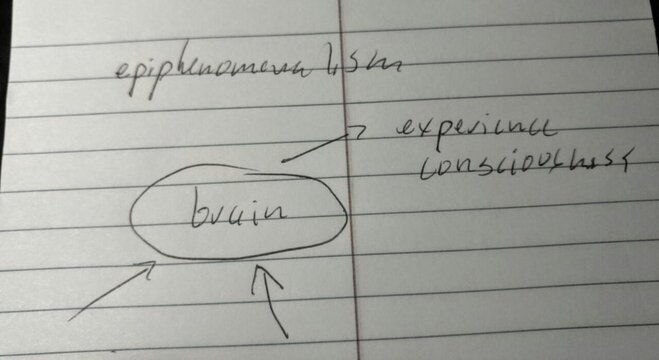 epiphenomenalism
experience
consciousness
brain